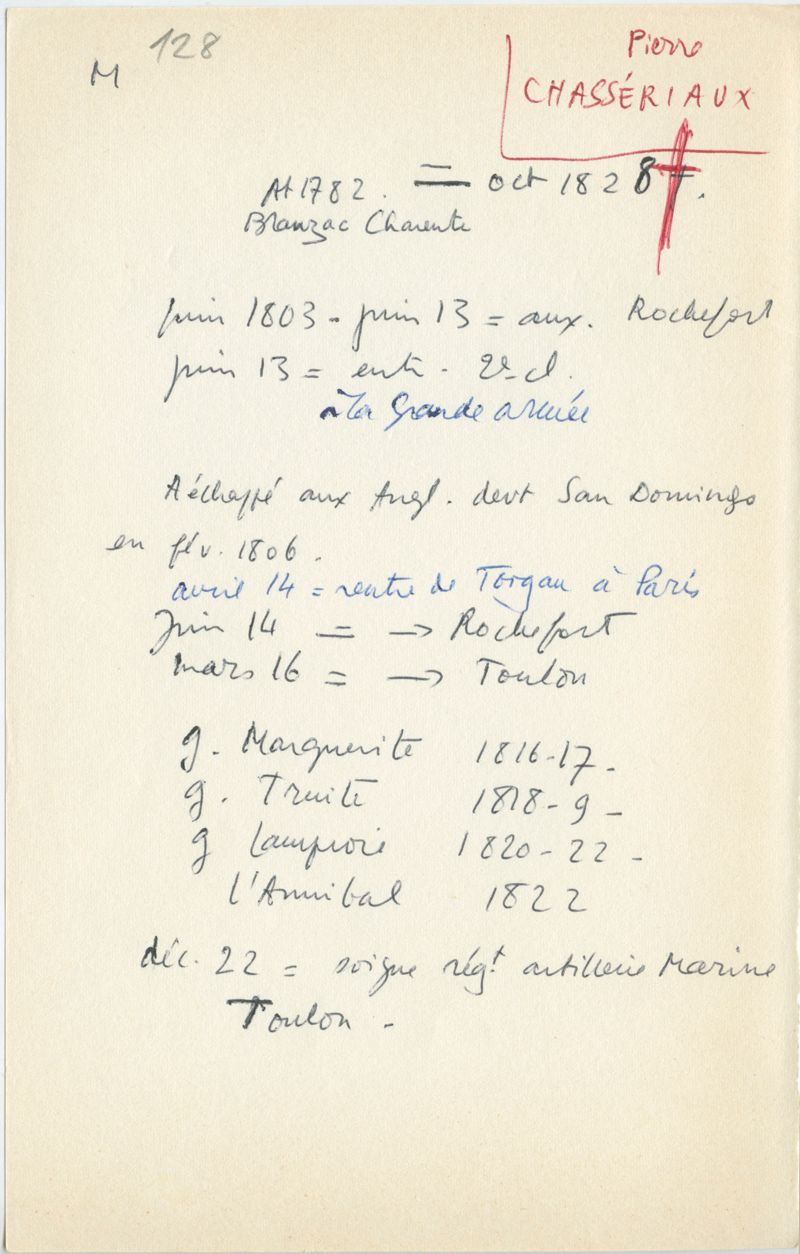 128
M
Pierre
CHASSÉRIAUX
At 1782. = oct 1828
Blanzac Charente
juin 1803 - juin 13 = aux. Rochefort
juin 13 = ent. 2e cl.
à la Grande armée
A échappé aux Angl. devt San Domingo
en fév. 1806.
avril 14 = rentre de Torgau à Paris
Juin 14 = → Rochefort
mars 16 = → Toulon
g. Marguerite 1816-17.
g. Truite 1818-9 -
g Lamproie 1820-22 -
l'Annibal 1822
déc. 22 = soigne régt artillerie Marine
Toulon -